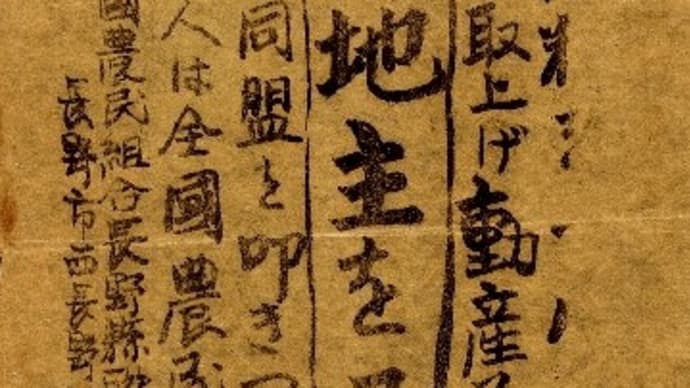 取上げ動産
地主を
同盟を叩きつ
人は全國農民
國農民組合長野縣
長野市西長野